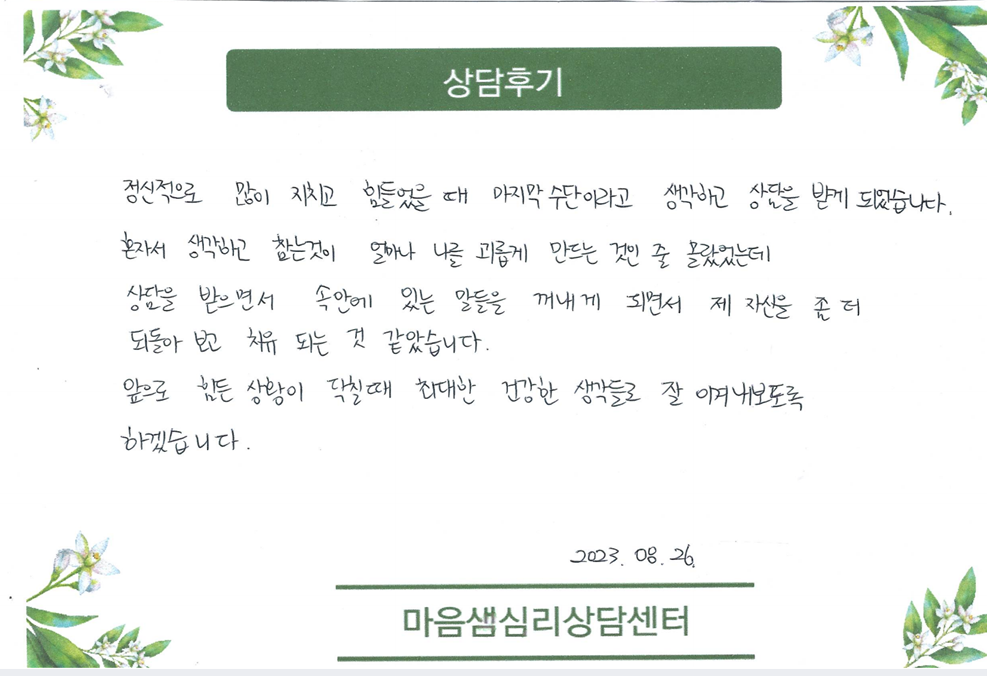 상담후기
정신적으로 많이 지치고 힘들었을 때 마지막 수단이라고 생각하고 상담을 받게 되었습니다.
혼자서 생각하고 참는것이 얼마나 나를 괴롭게 만드는 것인 줄 몰랐었는데
상담을 받으면서 속안에 있는 말들을 꺼내게 되면서 제 자신을 좀 더
되돌아 보고 치유 되는 것 같았습니다.
앞으로 힘든 상황이 닥칠때 최대한 건강한 생각들로 잘 이겨내보도록
하겠습니다.
2023. 08. 26.
마음샘심리상담센터